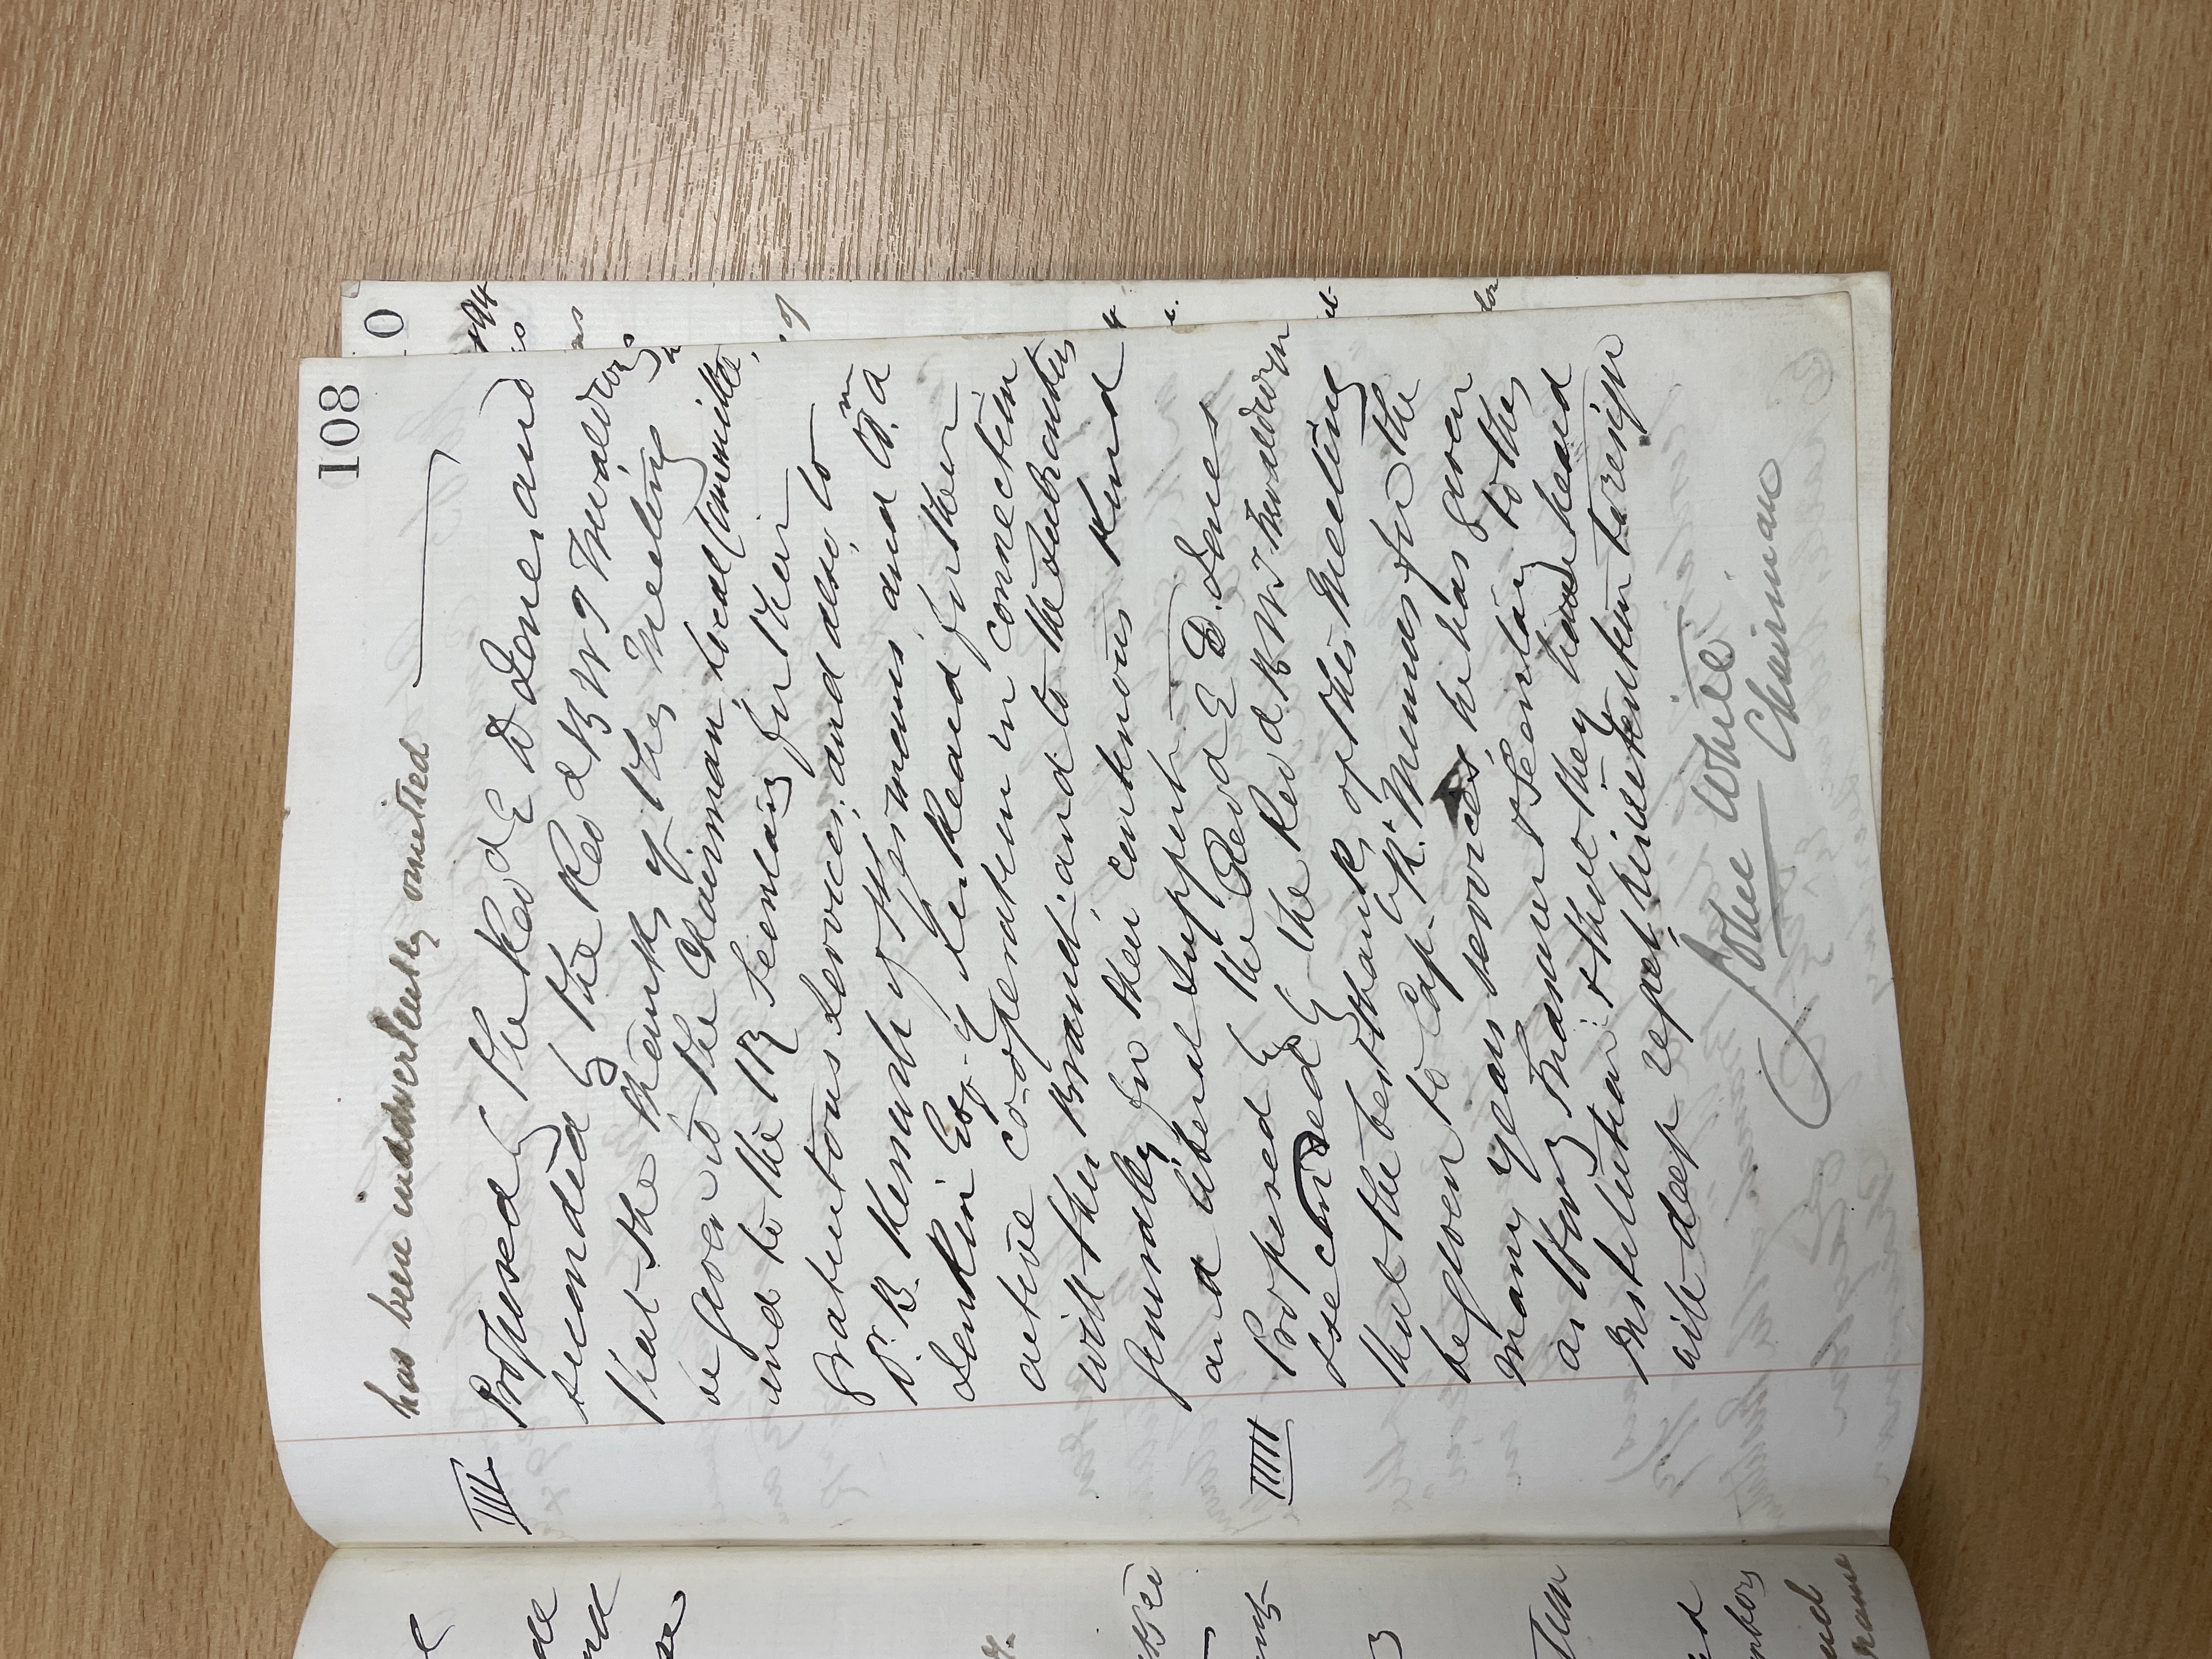 108
has been inadvertently omitted
III Proposed by the Revd E D Jones and
seconded by the Revd B W T
that the thanks of this Meeting
be given to the Chairman, Local Committee,
and to the Secretary for their
gratuitous services, and also to
Dr. B. and Wm
Jenkin Esq. of for their
active co-operation in connection
with this Branch, and to the Subscribers
generally for their continuous kind
and liberal support.
IIII Proposed by the Revd E D. Jones
seconded by the Revd. B W T
that the best thanks of this Meeting
be given to Capt. R. for the
many years services he has given
as Hony Treasurer & Secretary to the
Institution: & that they have heard
with deep regret his intention to resign
John White
Chairman